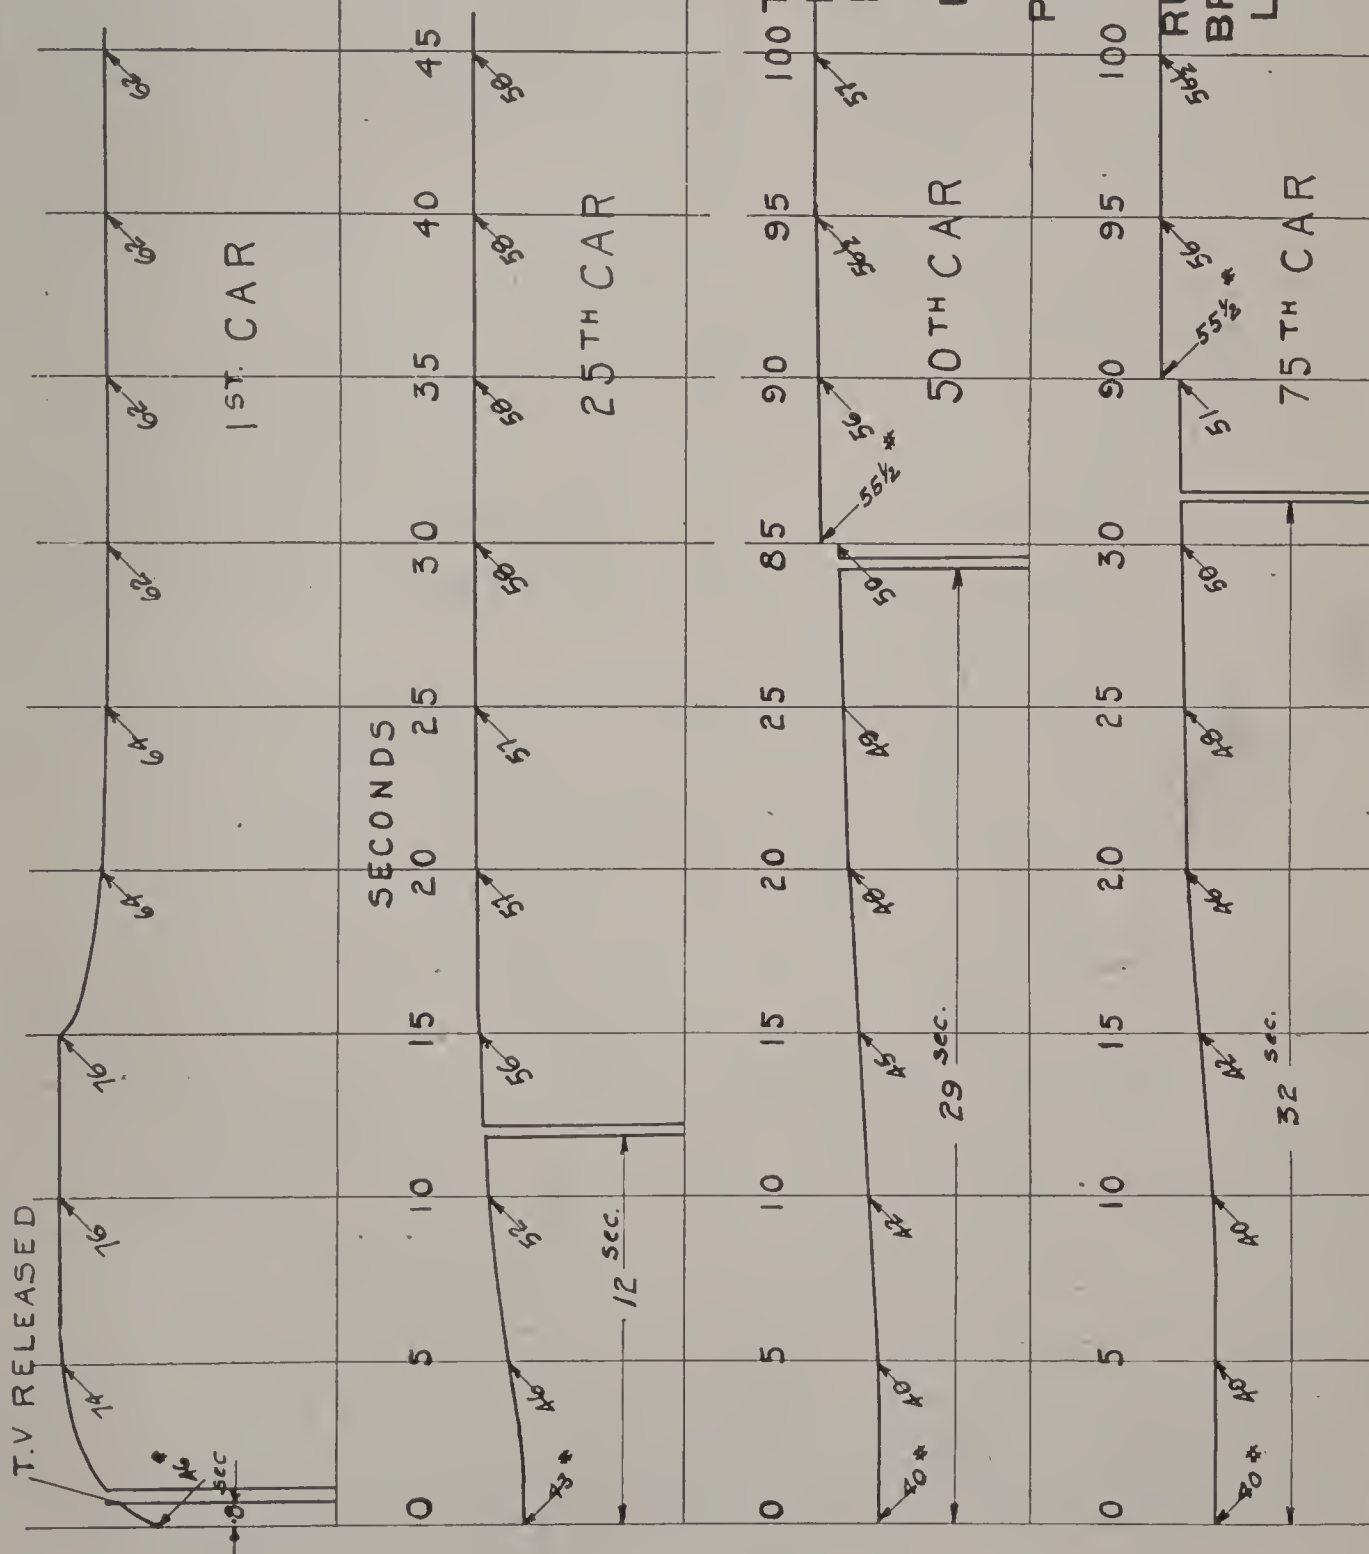 T.V RELEASED
46*
.8 sec
74
76
76
64
64
62
62
62
62
1ST. CAR
SECONDS
0 5 10 15 20 25 30 35 40 45
43*
46
52
56
57
57
58
58
58
58
12 sec.
25TH CAR
0 5 10 15 20 25 85 90 95 100
40*
40
42
45
48
49
50
55½*
56
56½
57
29 sec.
50TH CAR
0 5 10 15 20 25 30 90 95 100
40*
40
40
42
46
48
50
51
55½*
56
56½
32 sec.
75TH CAR
T
P
RU
BR
L